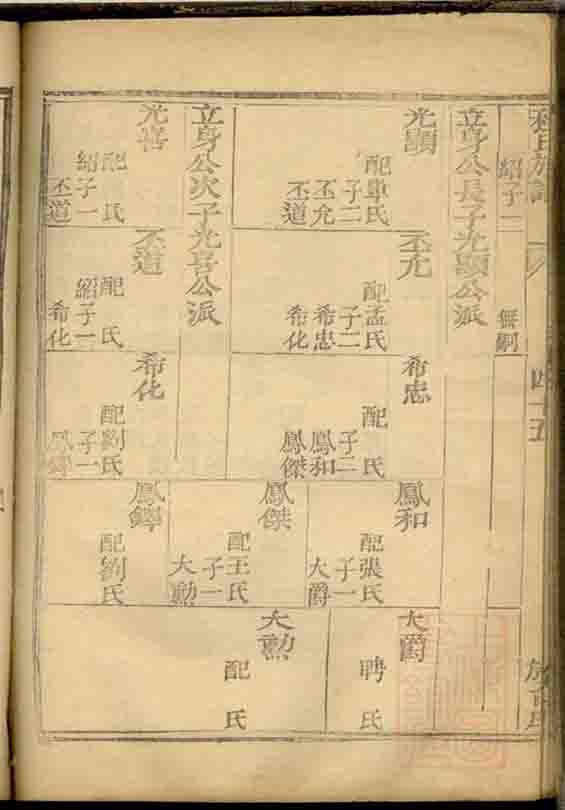 氏族譜
四十五
紹子一
無嗣
立身公長子光顯公派
光顯
配車氏
子二
丕允
丕道
丕允
配孟氏
子二
希忠
希化
希忠
配 氏
子二
鳳和
鳳傑
鳳和
配張氏
子一
大爵
大爵
聘 氏
鳳傑
配王氏
子一
大勲
大勲
配 氏
立身公次子光喜公派
光喜
配 氏
紹子一
丕道
丕道
配 氏
紹子一
希化
希化
配劉氏
子一
鳳鐸
鳳鐸
配劉氏